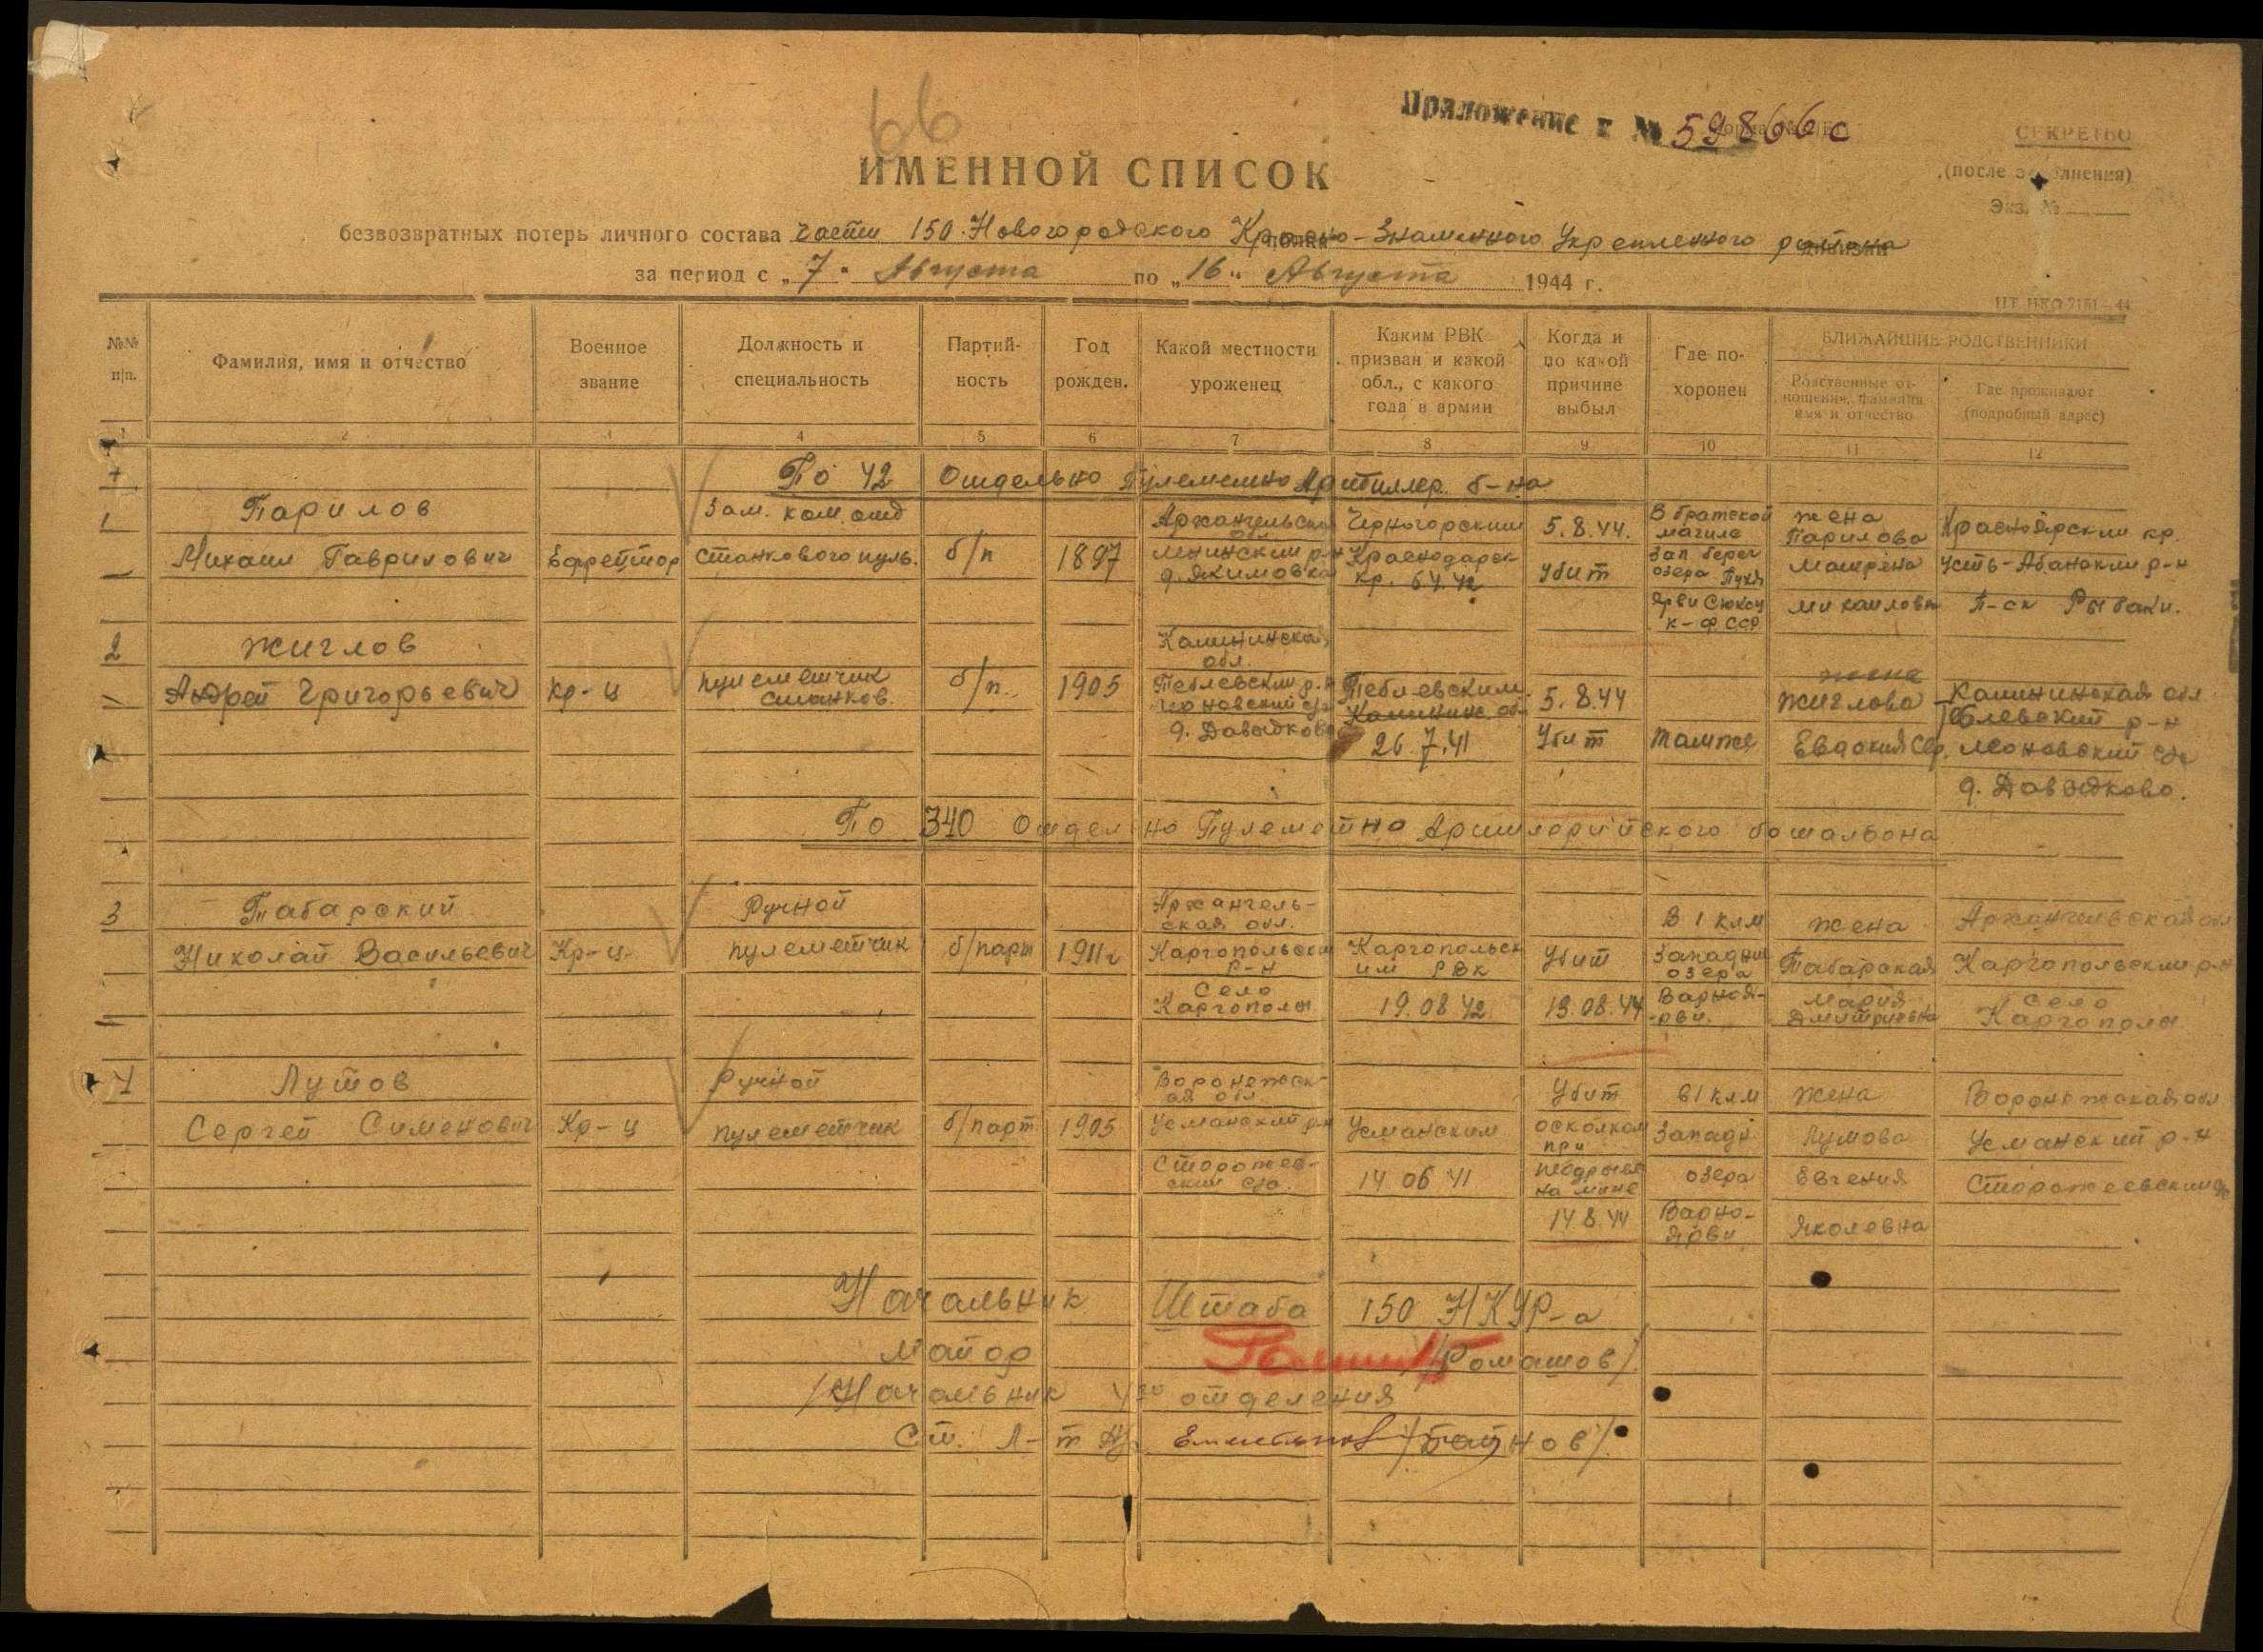 66
Приложение к № 59866с
СЕКРЕТНО
(после заполнения)
Экз. №
ИМЕННОЙ СПИСОК
безвозвратных потерь личного состава части 150 Новогородского Красно-Знаменного Укрепленного района
за период с „7" Августа по „16" Августа 1944 г.
ИТ НКО 2151—44
№№ п/п.
Фамилия, имя и отчество
Военное звание
Должность и специальность
Партий- ность
Год рожден.
Какой местности уроженец
Каким РВК призван и какой обл., с какого года в армии
Когда и по какой причине выбыл
Где по- хоронен
БЛИЖАЙШИЕ РОДСТВЕННИКИ
Родственные от- ношения, фамилия имя и отчество
Где проживают (подробный адрес)
1 2 3 4 5 6 7 8 9 10 11 12
По 42 Отдельно Пулеметно Артиллер. б-на
1 Парилов Зам. ком. отд Архангельская обл Черногорским 5.8.44. В братской магиле жена Парилова Красноярский кр.
Михаил Гаврилович Ефрейтор станкового пуль. б/п 1897 р-н д. Якимовка Краснодарск кр. 42 Убит Зап. берег озера матрена Усть-Абанский р-н
Ярви Сюксу К-ФССР михаиловн П-ск Рыбаки.
2 Жиглов Калининская обл.
Андрей Григорьевич Кр-ц пулеметчик станков. б/п. 1905 р-н д. Давыдково Калинин. об. 26.7.41 5.8.44 Убит там же жена Жиглова Евдокия Сер. Калининская обл р-н с/с д. Давыдково.
По 340 Отдельно Пулеметно Артиллерийского батальона
3 Табарский Ручной Архангель- ская обл. В 1 клм жена Архангельская обл
Николай Васильевич Кр-ц пулеметчик б/парт 1911г Каргопольский р-н Каргопольск им РВК Убит Западни озера Табарская Каргопольский р-н
Село Каргополы 19.08.42 13.08.44 Варной- рви. Мария Дмитриевна Село Каргополы
4 Лутов Ручной Воронежск- ая обл Убит в 1 клм жена Воронежская обл
Сергей Сименович Кр-ц пулеметчик б/парт 1905 Усманский р-н Усманским осколком при Западн Лутова Усманский р-н
Сторожев- ский с/с. 14.06.41 подрыве на мине озера Евгения Сторожеевский с/с
14.8.44 Варно- Ярви Яколевна
Начальник Штаба 150 НКУР-а
Майор /Ромашов/
/Начальник 4го отделения
Ст. Л-т